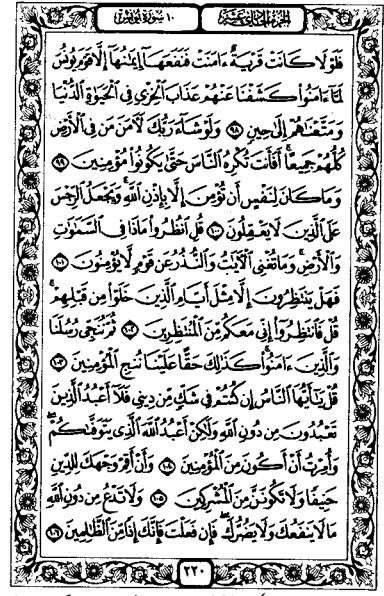 الجزء الحادي عشر
١٠ سورة يونس
فَلَوْلَا كَانَتْ قَرْيَةٌ ءَامَنَتْ فَنَفَعَهَآ إِيمَٰنُهَآ إِلَّا قَوْمَ يُونُسَ
لَمَّآ ءَامَنُوا۟ كَشَفْنَا عَنْهُمْ عَذَابَ ٱلْخِزْىِ فِى ٱلْحَيَوٰةِ ٱلدُّنْيَا
وَمَتَّعْنَٰهُمْ إِلَىٰ حِينٍ ٩٨ وَلَوْ شَآءَ رَبُّكَ لَءَامَنَ مَن فِى ٱلْأَرْضِ
كُلُّهُمْ جَمِيعًا ۚ أَفَأَنتَ تُكْرِهُ ٱلنَّاسَ حَتَّىٰ يَكُونُوا۟ مُؤْمِنِينَ ٩٩
وَمَا كَانَ لِنَفْسٍ أَن تُؤْمِنَ إِلَّا بِإِذْنِ ٱللَّهِ ۚ وَيَجْعَلُ ٱلرِّجْسَ
عَلَى ٱلَّذِينَ لَا يَعْقِلُونَ ١٠٠ قُلِ ٱنظُرُوا۟ مَاذَا فِى ٱلسَّمَٰوَٰتِ
وَٱلْأَرْضِ ۚ وَمَا تُغْنِى ٱلْءَايَٰتُ وَٱلنُّذُرُ عَن قَوْمٍ لَّا يُؤْمِنُونَ ١٠١
فَهَلْ يَنتَظِرُونَ إِلَّا مِثْلَ أَيَّامِ ٱلَّذِينَ خَلَوْا۟ مِن قَبْلِهِمْ ۚ
قُلْ فَٱنتَظِرُوٓا۟ إِنِّى مَعَكُم مِّنَ ٱلْمُنتَظِرِينَ ١٠٢ ثُمَّ نُنَجِّى رُسُلَنَا
وَٱلَّذِينَ ءَامَنُوا۟ ۚ كَذَٰلِكَ حَقًّا عَلَيْنَا نُنجِ ٱلْمُؤْمِنِينَ ١٠٣
قُلْ يَٰٓأَيُّهَا ٱلنَّاسُ إِن كُنتُمْ فِى شَكٍّ مِّن دِينِى فَلَآ أَعْبُدُ ٱلَّذِينَ
تَعْبُدُونَ مِن دُونِ ٱللَّهِ وَلَٰكِنْ أَعْبُدُ ٱللَّهَ ٱلَّذِى يَتَوَفَّىٰكُمْ ۖ
وَأُمِرْتُ أَنْ أَكُونَ مِنَ ٱلْمُؤْمِنِينَ ١٠٤ وَأَنْ أَقِمْ وَجْهَكَ لِلدِّينِ
حَنِيفًا وَلَا تَكُونَنَّ مِنَ ٱلْمُشْرِكِينَ ١٠٥ وَلَا تَدْعُ مِن دُونِ ٱللَّهِ
مَا لَا يَنفَعُكَ وَلَا يَضُرُّكَ ۖ فَإِن فَعَلْتَ فَإِنَّكَ إِذًا مِّنَ ٱلظَّٰلِمِينَ ١٠٦
٢٢٠